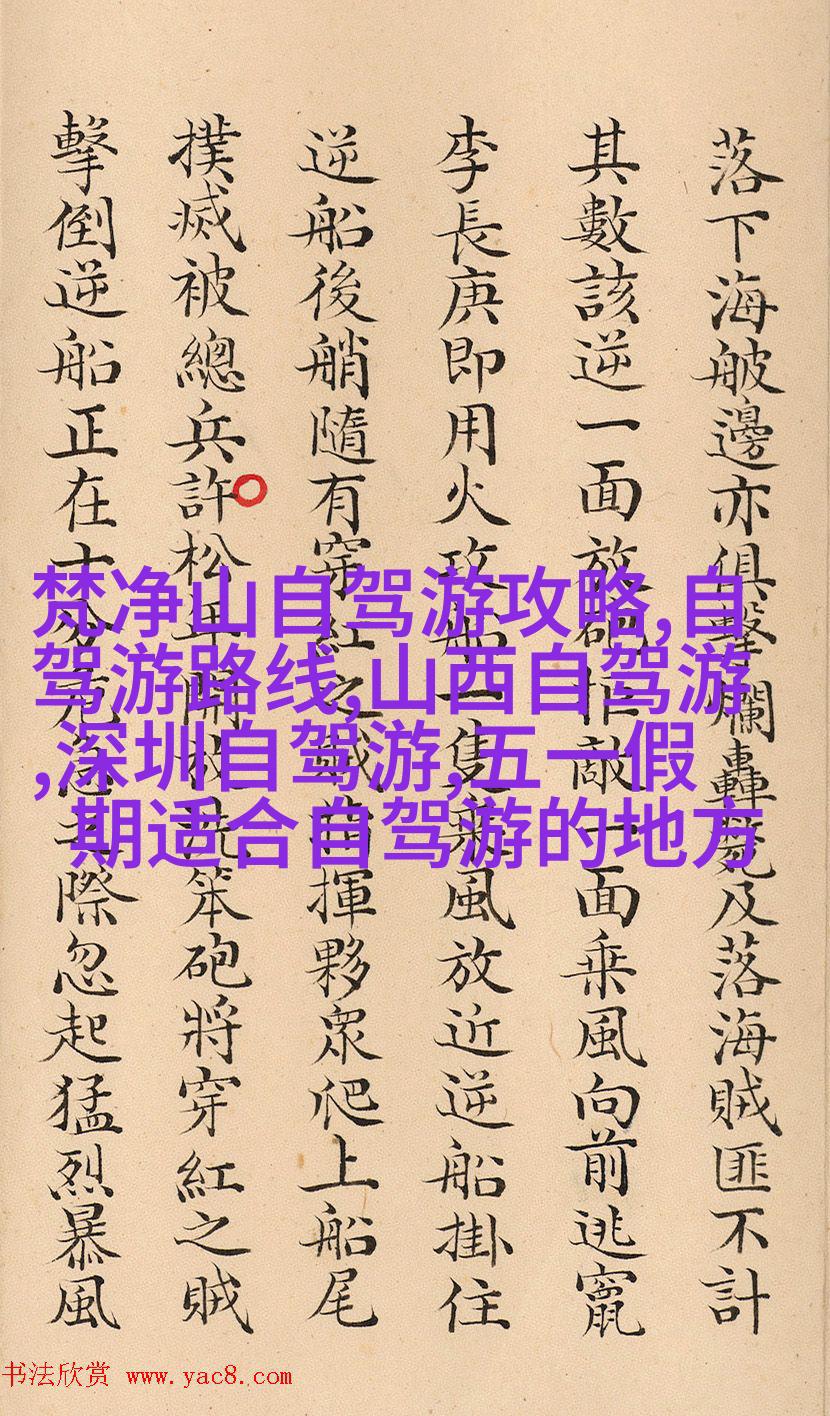 落下海舨邊亦俱擊爛轟斃及落海賊匪不計
其數該逆一面放砲拒敵一面乗風向前逃竄
李長庚即用火攻船一隻乘風放近逆船掛住
逆船後艄隨有穿紅之賊首揮夥眾爬上船尾
撲滅被總兵許松年開放九筞砲將穿紅之賊
擊倒逆船正在十分危急之際忽起猛烈暴風
梵净山自驾游攻略,自
驾游路线,山西自驾游
,深圳自驾游,五一假
期适合自驾游的地方
书法欣赏 www.yac8.com